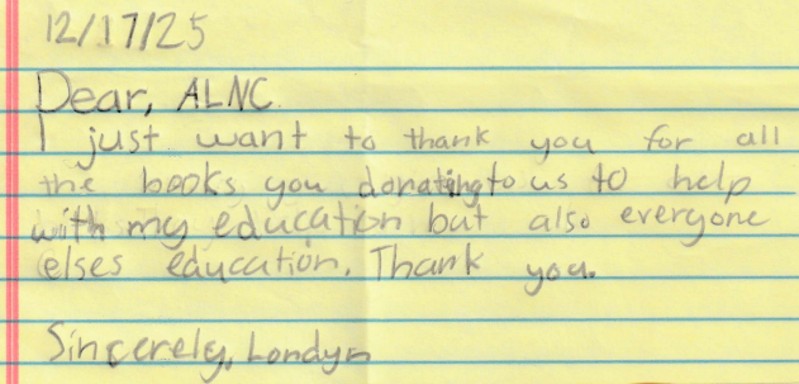 12/17/25
Dear, ALNC
I just want to thank you for all
the books you donating to us to help
with my education but also everyone
elses education. Thank you.
Sincerely, Londyn